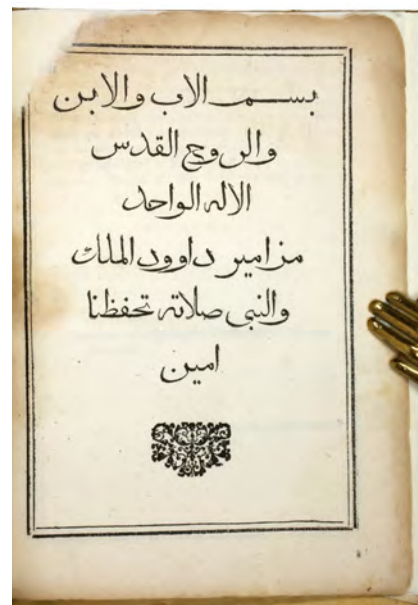 بسم الاب والابن
والروح القدس
الاله الواحد
مزامير داوود الملك
والنبى صلاته تحفظنا
امين